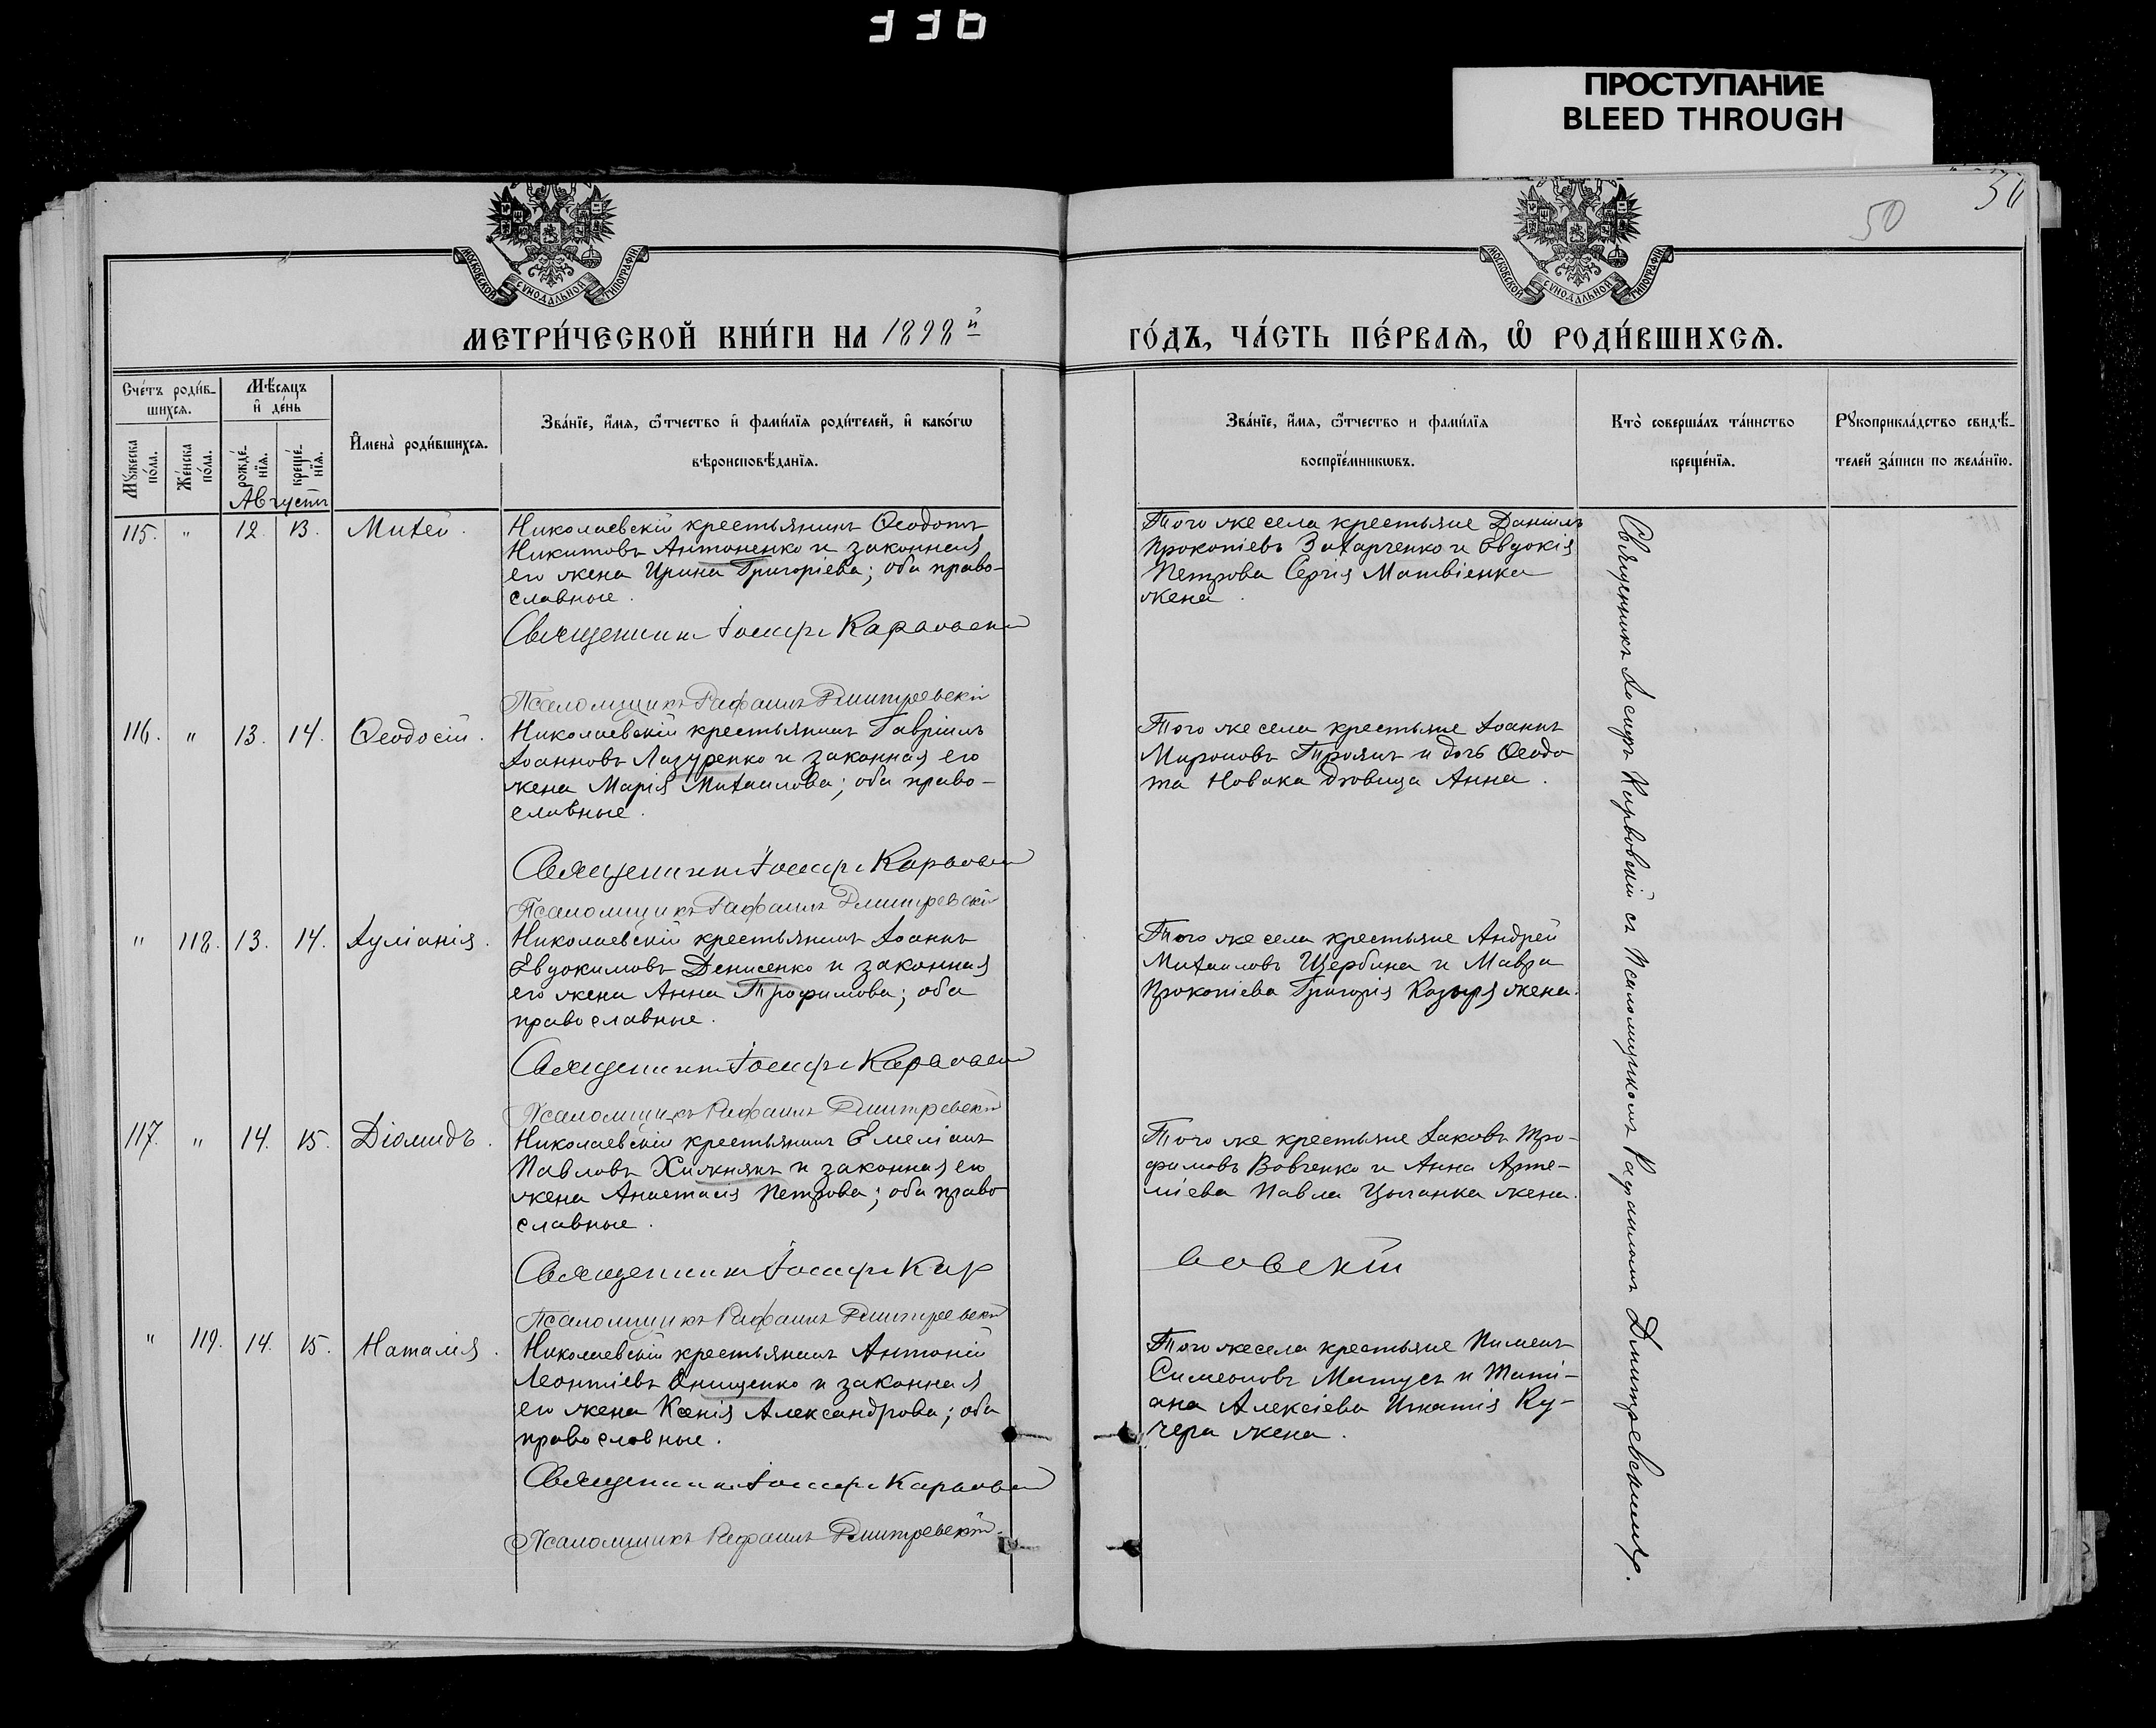 336
ПРОСТУПАНИЕ
BLEED THROUGH
50
МОСКОВСКОЙ СѴНОДАЛЬНОЙ ТИПОГРАФІИ
МОСКОВСКОЙ СѴНОДАЛЬНОЙ ТИПОГРАФІИ
МЕТРИ́ЧЕСКОЙ КНИ́ГИ НА 1898й
ГО́ДЪ, ЧА́СТЬ ПЕ́РВАѦ, Ѽ РОДИ́ВШИХСѦ.
Сче́тъ роди́в-
шихсѧ.
Мꙋ́жеска по́ла.
Же́нска по́ла.
Мѣ́сѧцъ
и҆ де́нь
рожде́нїѧ.
креще́нїѧ.
Августъ
И҆мена̀ роди́вшихсѧ.
Зва́нїе, и҆́мѧ, ѻ҆́тчество и҆ фами́лїѧ роди́телей, и҆ како́гѡ
вѣроисповѣ́данїѧ.
Зва́нїе, и҆́мѧ, ѻ҆́тчество и фами́лїѧ
воспрїе́мникѡвъ.
Кто̀ соверша́лъ та́инство
креще́нїѧ.
Рꙋкоприкла́дство свидѣ́-
телей за́писи по жела́нїю.
115. " 12. 13. Михей.
Николаевскій крестьянинъ Ѳеодотъ
Никитовъ Антоненко и законная
его жена Ирина Григоріева; оба право-
славные.
Священникъ Іосифъ Карвовскій
Псаломщикъ Рафаилъ Дмитревскій
Того же села крестьяне Даніилъ
Прокопіевъ Захарченко и Евдокія
Петрова Сергія Матвіенка
жена.
116. " 13. 14. Ѳеодосій.
Николаевскій крестьянинъ Гавріилъ
Іоанновъ Лазуренко и законная его
жена Марія Михаилова; оба право-
славные.
Священникъ Іосифъ Карвовскій
Псаломщикъ Рафаилъ Дмитревскій
Того же села крестьяне Іоаннъ
Мироновъ Троянъ и дочь Ѳеодо
та Новака дѣвица Анна.
" 118. 13. 14. Іуліанія.
Николаевскій крестьянинъ Іоаннъ
Евдокимовъ Денисенко и законная
его жена Анна Трофимова; оба
православные.
Священникъ Іосифъ Карвовскій
Псаломщикъ Рафаилъ Дмитревскій
Того же села крестьяне Андрей
Михаиловъ Щербина и Мавра
Прокопіева Григорія Козыря жена.
117. " 14. 15. Діомидъ.
Николаевскій крестьянинъ Емеліанъ
Павловъ Хижнякъ и законная его
жена Анастасія Петрова; оба право
славные.
Священникъ Іосифъ Кар
вовскій
Псаломщикъ Рафаилъ Дмитревскій
Того же крестьяне Іаковъ Тро-
фимовъ Вовченко и Анна Арте-
міева Павла Цыганка жена.
" 119. 14. 15. Наталія.
Николаевскій крестьянинъ Антоній
Леонтіевъ Онищенко и законная
его жена Ксенія Александрова; оба
православные.
Священникъ Іосифъ Карвовскій
Псаломщикъ Рафаилъ Дмитревскій.
Того же села крестьяне Пименъ
Симеоновъ Матусъ и Таті-
ана Алексіева Игнатія Ку-
чера жена.
Священникъ Іосифъ Карвовскій съ Псаломщикомъ Рафаиломъ Дмитревскимъ.